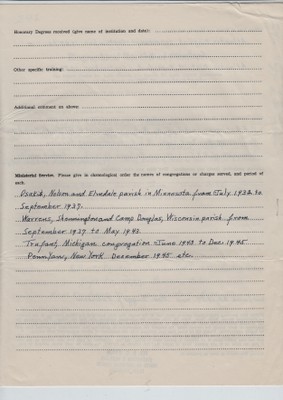 Honorary Degrees received (give name of institution and date):
Other specific training:
Additional comment on above:
Ministerial Service. Please give in chronological order the names of congregations or charges served, and period of
each.
Nelson and Elmdale parish in Minnesota, from July 1932 to
September 1937.
Warrens, Shennington and Camp Douglas, Wisconsin parish from
September 1937 to May 1943.
Trufant, Michigan congregation June 1943 to Dec. 1945.
Penn Yan, New York December 1945 etc.